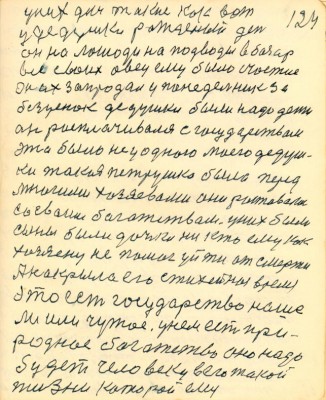 124
у них дни такие как вот
у дедушки рожденый ден
он на лошади на подводы в базар
вез своих овец ему было счастие
он их запродал у понеделник за
бесценок дедушки были надо дети
он росплачивался с государством
эта было не у одного моего дедуш-
ки такая петрушка была перед
многими хозяевами они ростовалис
со своим богатством. у них были
сыны были дочки ни кто ему как
хозяену не помог уйти от смерти
А накрыла его стихейное время
Это ест государство наше
ли или чужое. у нем ест при-
родное богатство оно надо
будет человеку в его такой
жизни которой ему